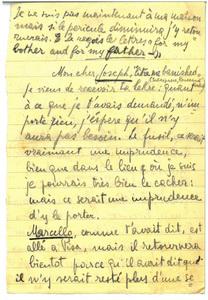 Je ne suis pas maintenant à ma maison
mais si le pericule diminuira j'y re
tournerais. Je reçois le letres for my
brother and for my father
Mon cher, Joseph,
je viens de recevoir ta lettre: quant
à ce que je t'avais demandé, n'im
porte rien, j'espère que il n'y
aura pas besoin. Le fusil, c'est
vraiment une imprudence,
bien que dans le lieu où je suis
je pourrais très bien le cacher:
mais ce serait une imprudence
d'y le porter.
Marcello, comme t'avait dit, est
allé a Pisa, mais il retournera
bientôt parce qu'il avait dit qu'
il n'y serait resté plus d'une se